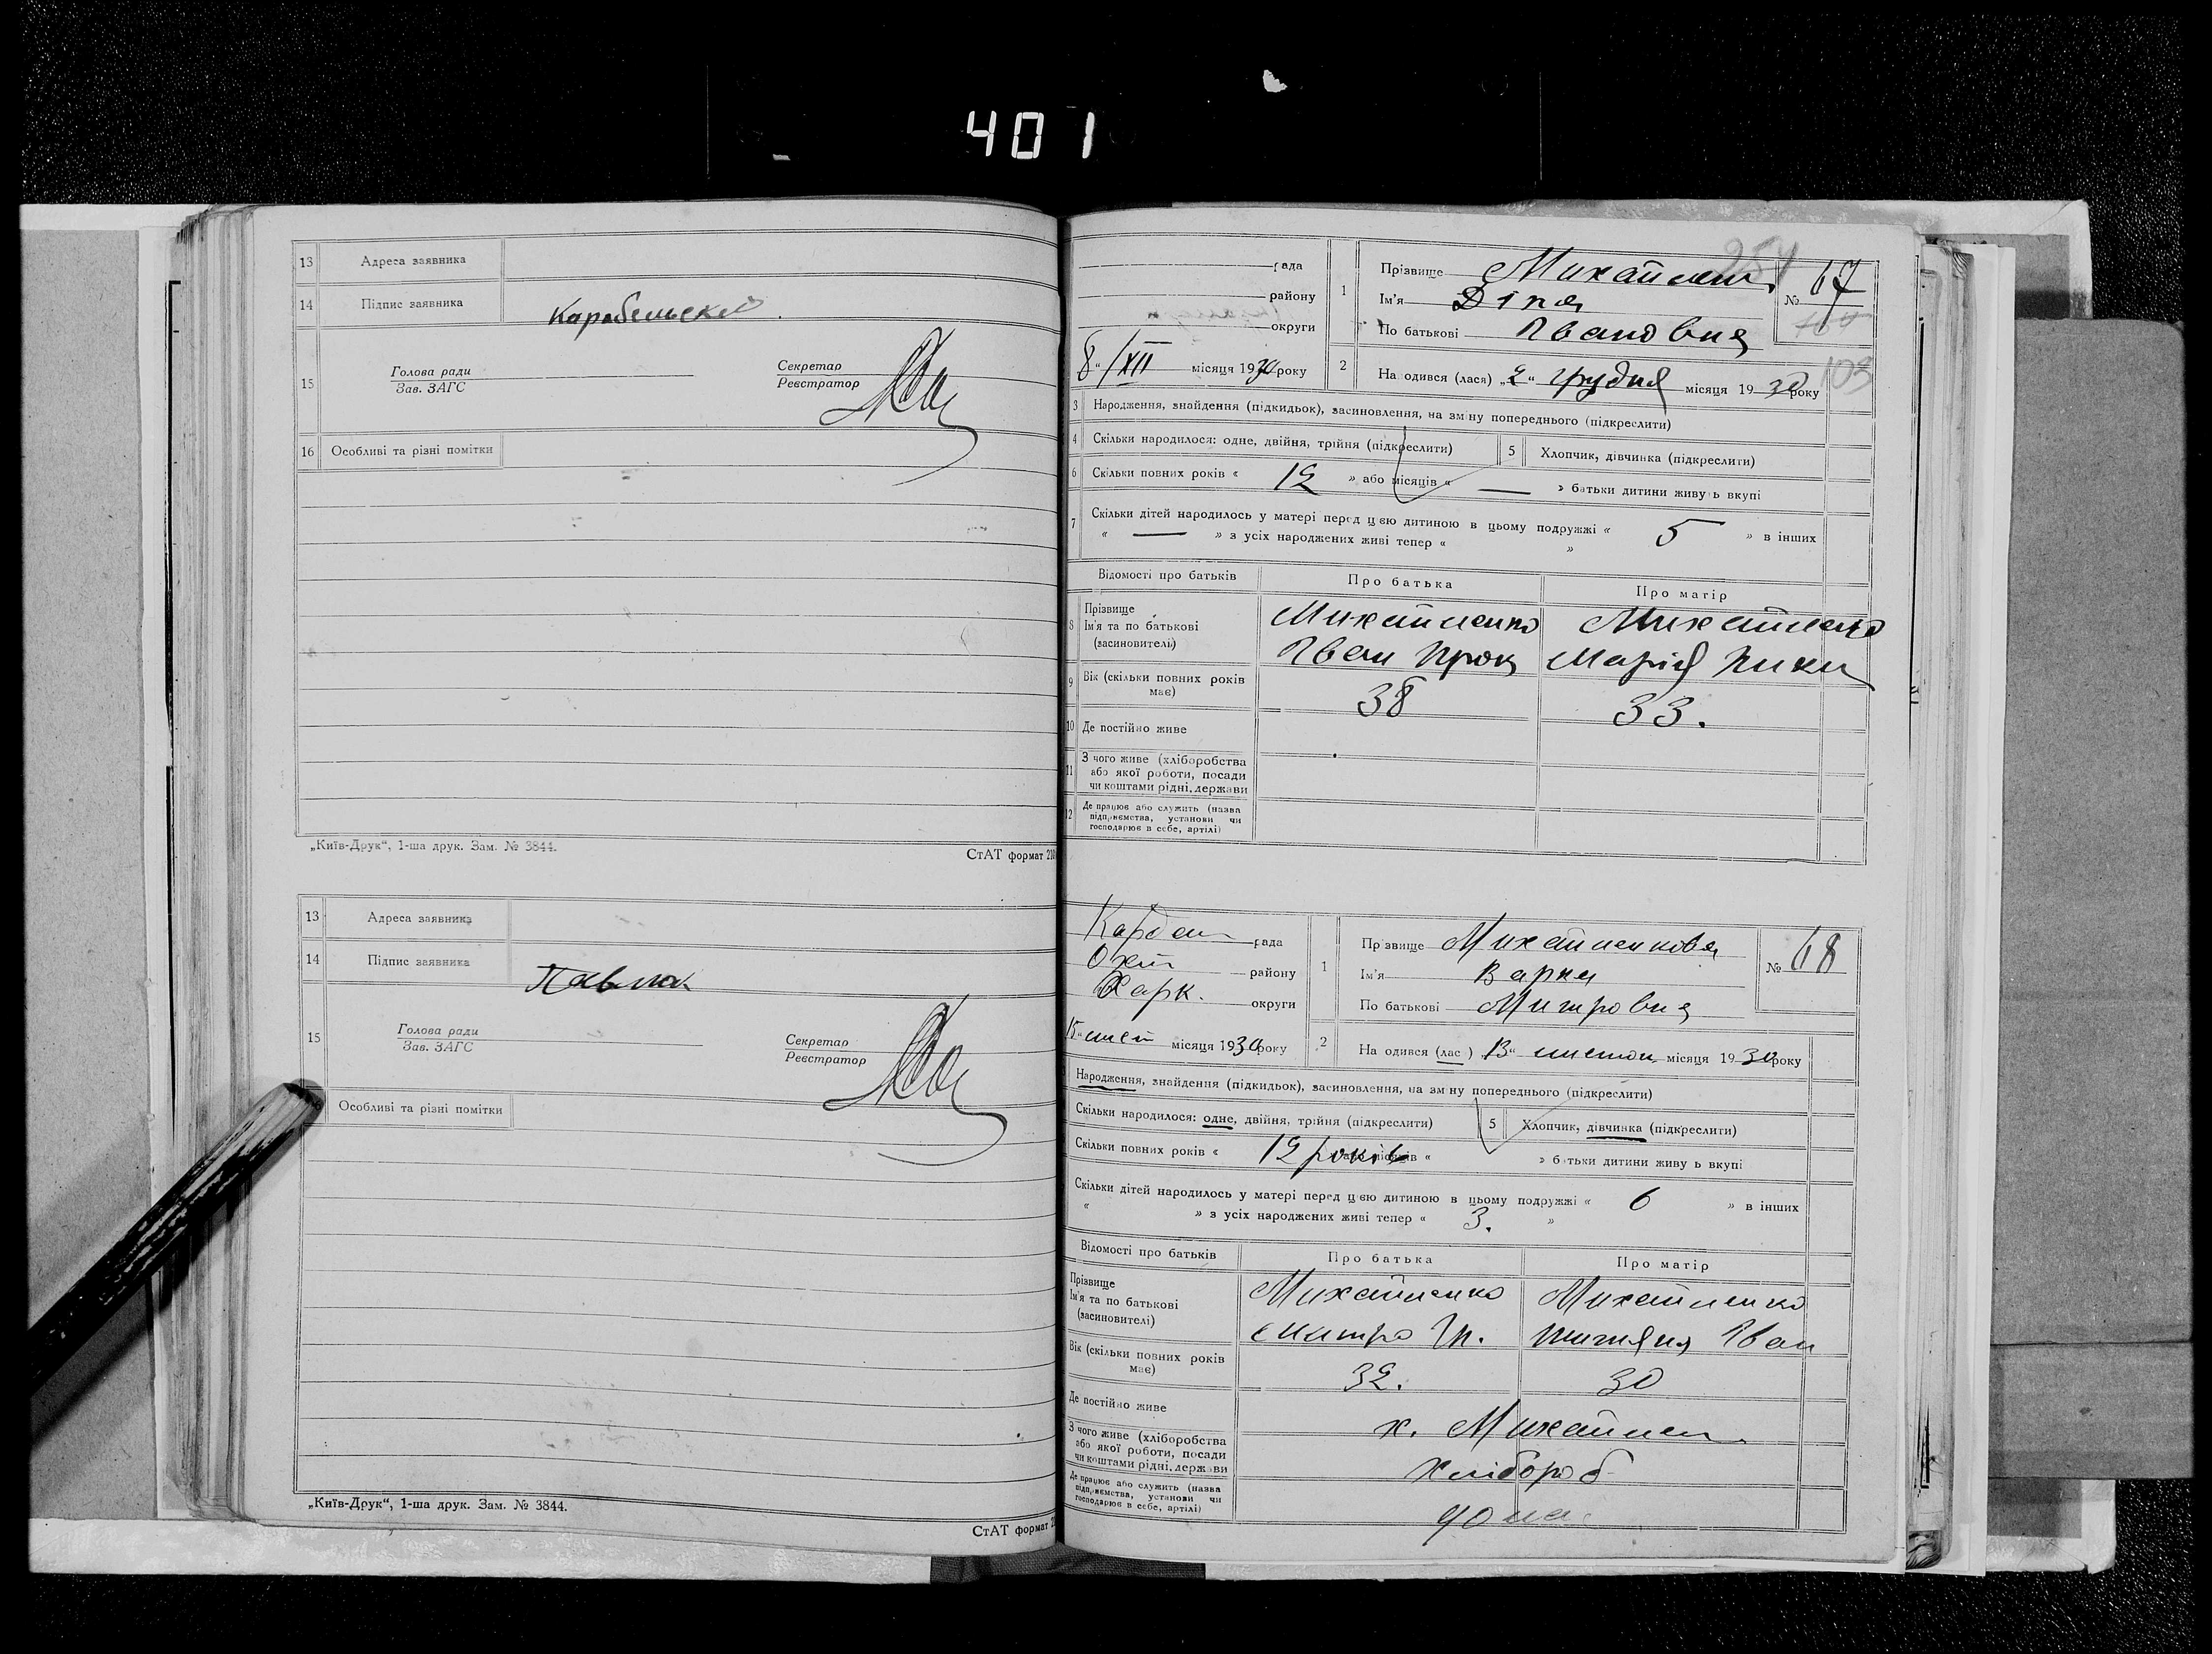 401
13 Адреса заявника
14 Підпис заявника Карабельский
15 Голова ради
Зав. ЗАГС
Секретар
Реєстратор
16 Особливі та різні помітки
„Київ-Друк“, 1-ша друк. Зам. № 3844.
СтАТ формат
13 Адреса заявника
14 Підпис заявника Павлюк
15 Голова ради
Зав. ЗАГС
Секретар
Реєстратор
Особливі та різні помітки
„Київ-Друк“, 1-ша друк. Зам. № 3844.
СтАТ формат
254
рада
району
округи
8 “ XII місяця 1930 року
1 Прізвище Михайлен
Ім'я Діна
По батькові Івановна
№ 67
103
2 На одився (лася) „2“ грудня місяця 1930 року
3 Народження, знайдення (підкидьок), засиновлення, на зміну попереднього (підкреслити)
4 Скільки народилося: одне, двійня, трійня (підкреслити) 5 Хлопчик, дівчинка (підкреслити)
6 Скільки повних років « 12 » або місяців « — » батьки дитини живуть вкупі
7 Скільки дітей народилось у матері перед цією дитиною в цьому подружжі « 5 » в інших
« — » з усіх народжених живі тепер « »
Відомості про батьків Про батька Про матір
8 Прізвище
Ім'я та по батькові
(засиновитель)
Михайленко Михайленко
Іван Прок Марія Ники
9 Вік (скільки повних років має) 38 33.
10 Де постійно живе
11 З чого живе (хліборобства
або якої роботи, посади
чи коштами рідні, держави
12 Де працює або служить (назва
підприємства, установи чи
господарює в себе, артілі)
Кардаш рада
Охт району
Харк. округи
15 “ лист місяця 1930 року
1 Прізвище Михайленкова
Ім'я Варка
По батькові Митровна
№ 68
2 На одився (лас ) „13“ листоп місяця 1930 року
Народження, знайдення (підкидьок), засиновлення, на зміну попереднього (підкреслити)
Скільки народилося: одне, двійня, трійня (підкреслити) 5 Хлопчик, дівчинка (підкреслити)
Скільки повних років « 12 років або місяців « » батьки дитини живу ь вкупі
Скільки дітей народилось у матері перед цією дитиною в цьому подружжі « 6 » в інших
« » з усіх народжених живі тепер « 3. »
Відомості про батьків Про батька Про матір
Прізвище
Ім'я та по батькові
(засиновителі)
Михайленко Михайленко
Митро Іван
Вік (скільки повних років має) 32. 30
Де постійно живе х. Михайлен
З чого живе (хліборобства
або якої роботи, посади
чи коштами рідні, держави
Хлібороб
Де працює або служить (назва
підприємства, установи чи
господарює в себе, артілі)
дома